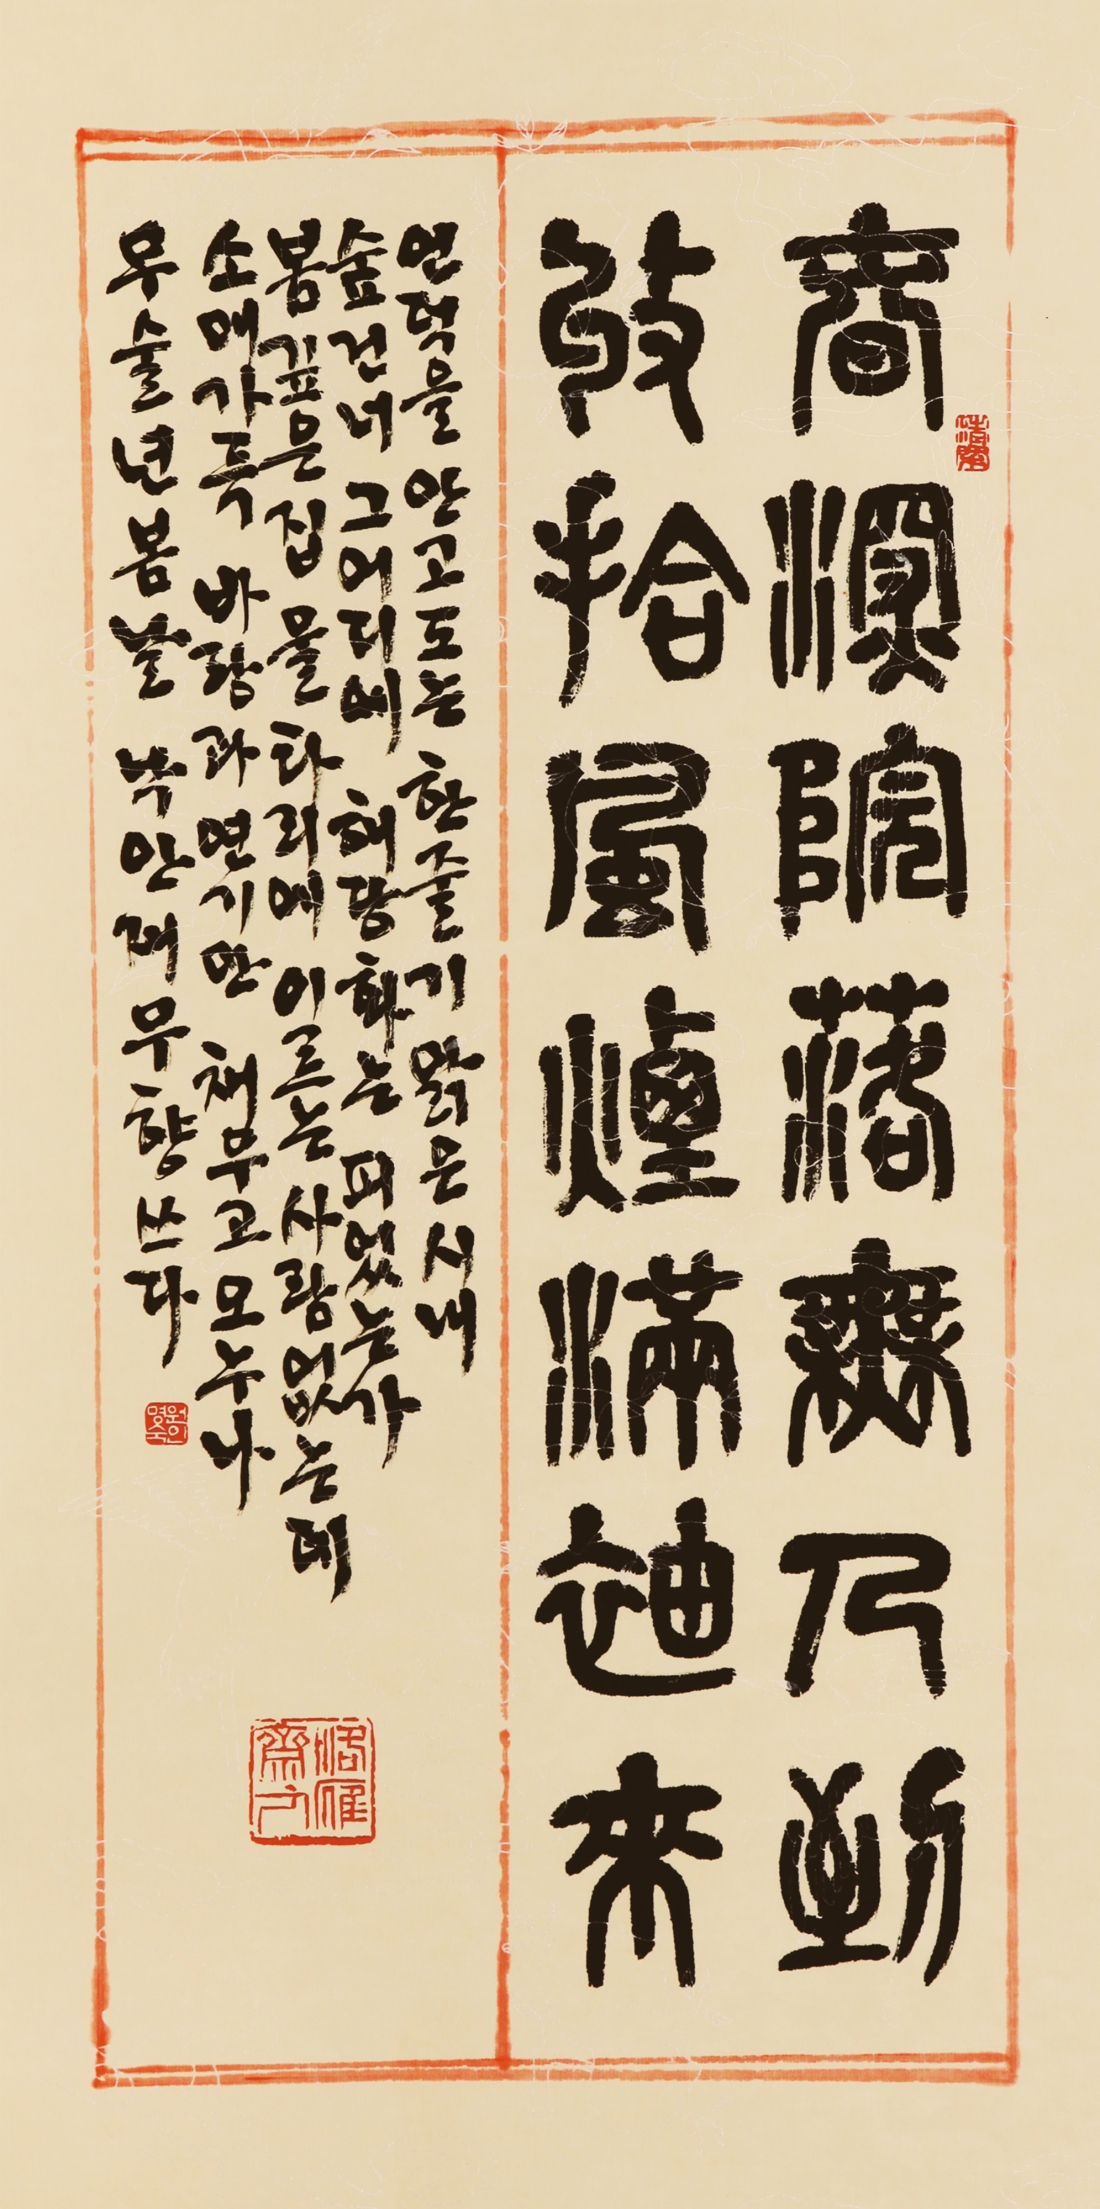 春深院落無人到
收拾風煙滿袖來
언덕을 안고도는 한줄기 맑은 시내
숲 건너 그 어디에 해당화는 피었는가
봄 깊은 집 울타리에 이르는 사람 없는데
소매 가득 바람과 연기만 채우고 오누나
무술년 봄날 낙안재 무향 쓰다